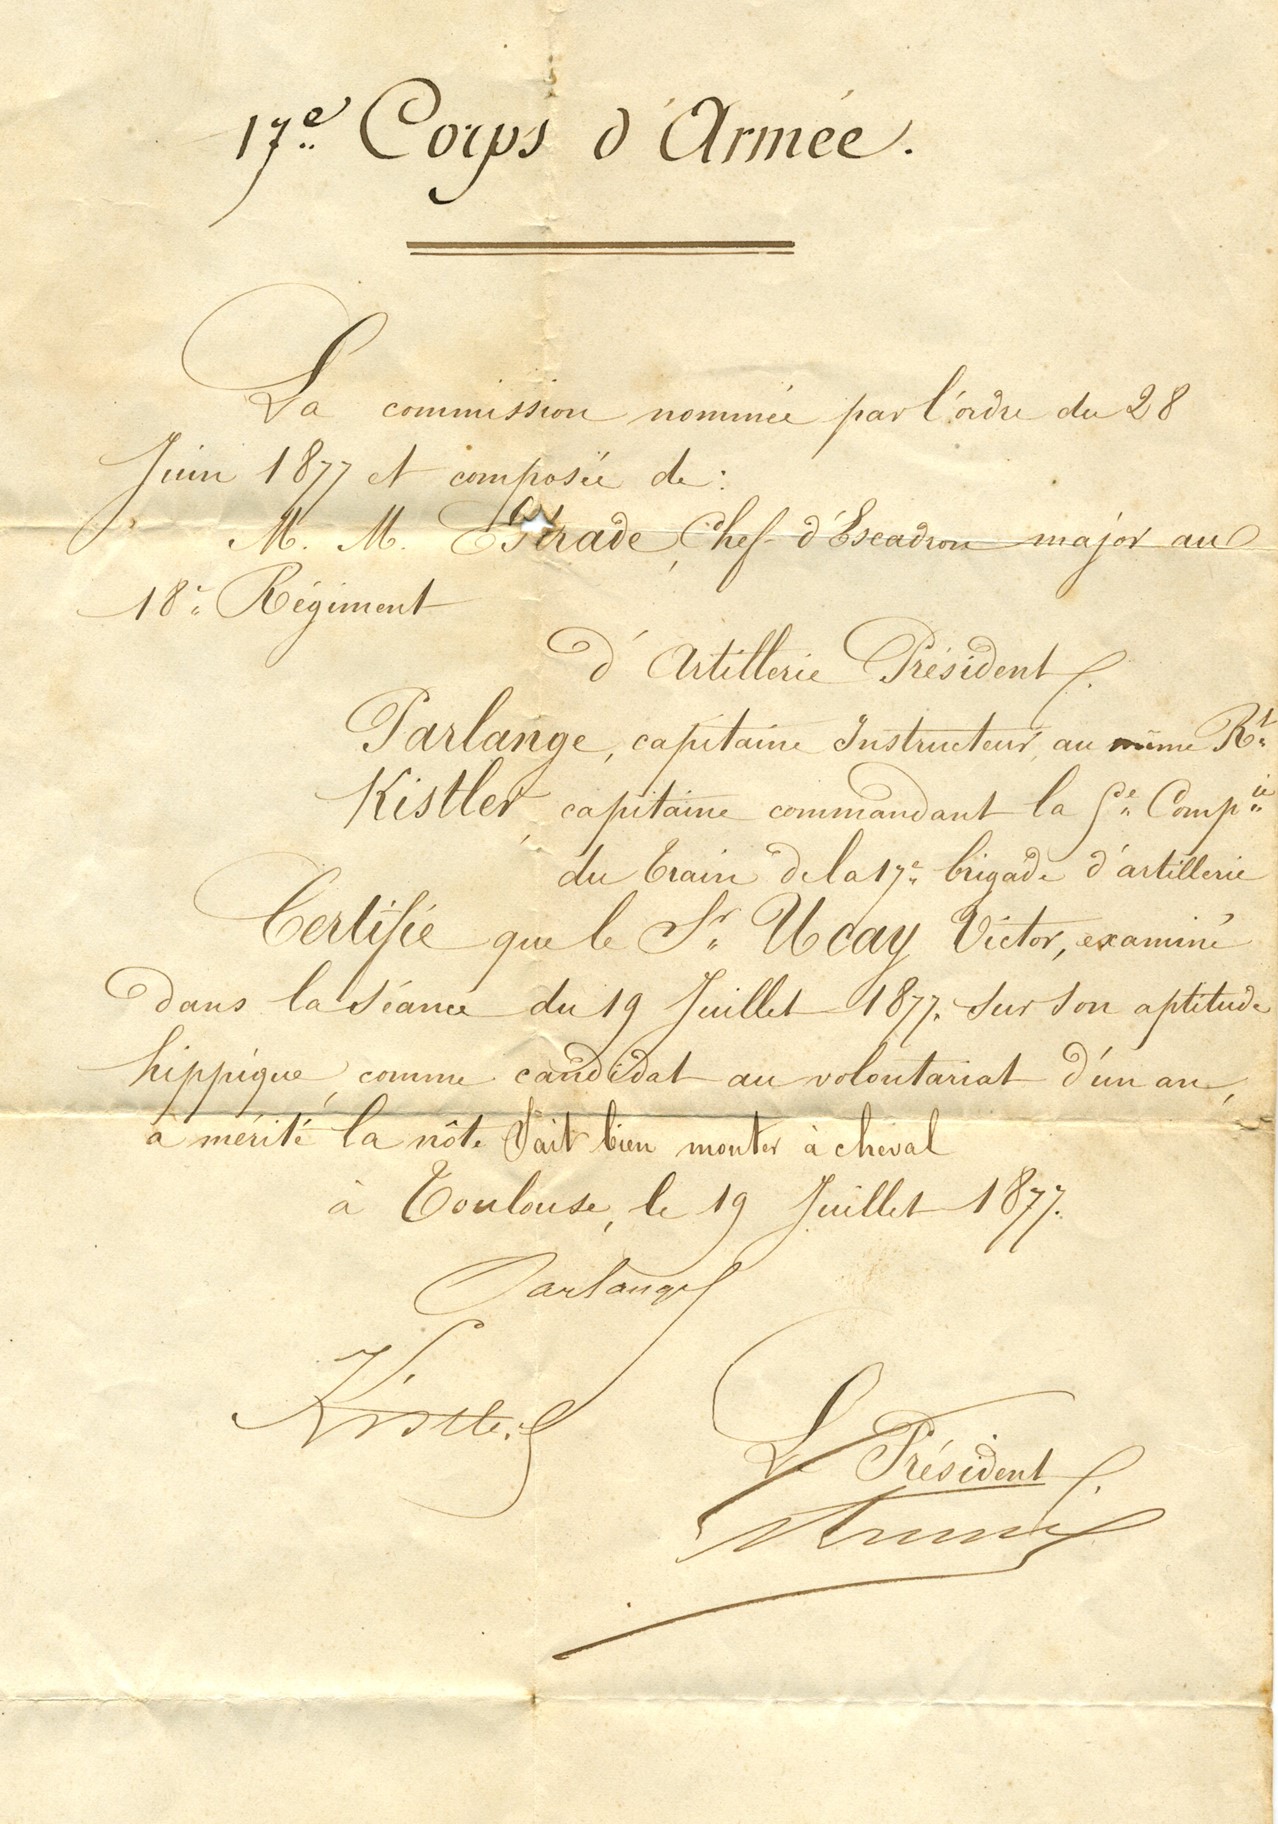 17e Corps d'Armée.
La commission nommée par l'ordre du 28
Juin 1877 et composée de :
M. M. Estrade, Chef d'Escadron major au
18e Régiment
d'Artillerie Président
Parlange, capitaine Instructeur au même Rt
Kistler, capitaine commandant la Compie
du train de la 17e brigade d'artillerie
Certifie que le Sr Ucay Victor, examiné
dans la séance du 19 Juillet 1877. sur son aptitude
hippique, comme candidat au volontariat d'un an,
à mérité la nôte Fait bien monter à cheval
à Toulouse, le 19 Juillet 1877.
Parlange
Kistler
Le Président